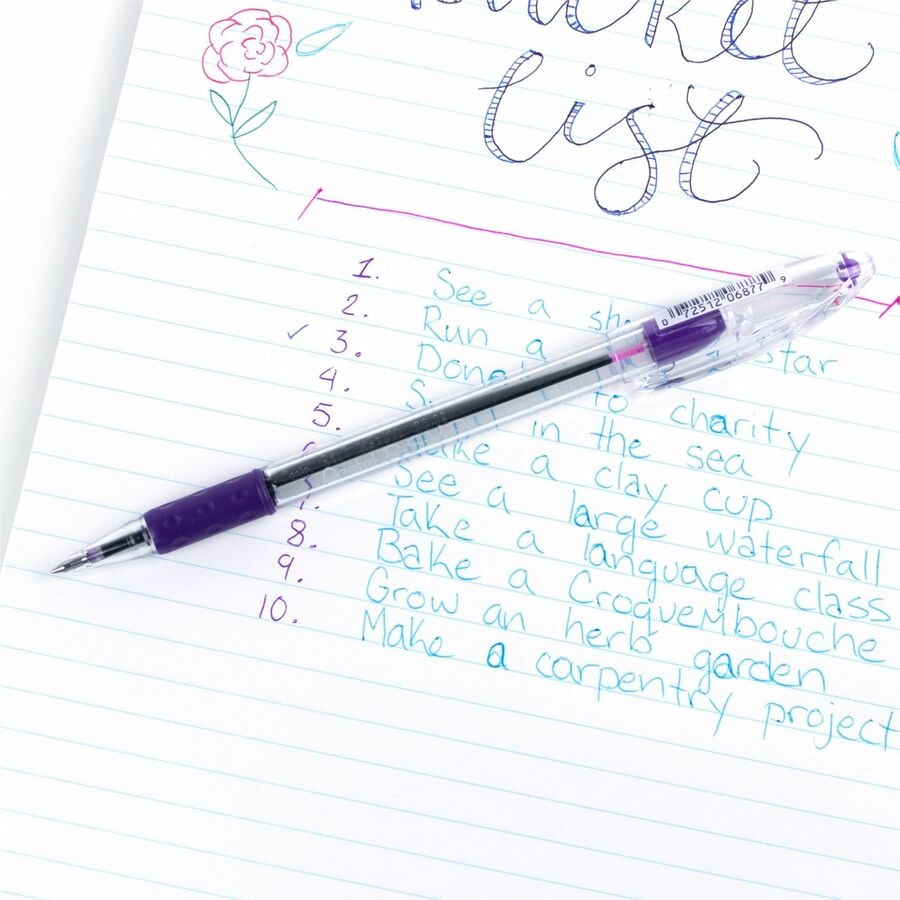 list
1. See a star
2. Run a
✓ 3. to charity
4. in the sea
5. Make a clay cup
See a large waterfall
Take a language class
8. Bake a Croquembouche
9. Grow an herb garden
10. Make a carpentry project
0 72512 06877 9